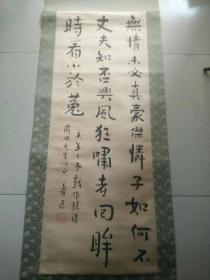 無情未必真豪傑憐子如何不
丈夫知否興風狂嘯者回眸
時看小於菟
未年之冬戲作錄請
先生 正 魯迅